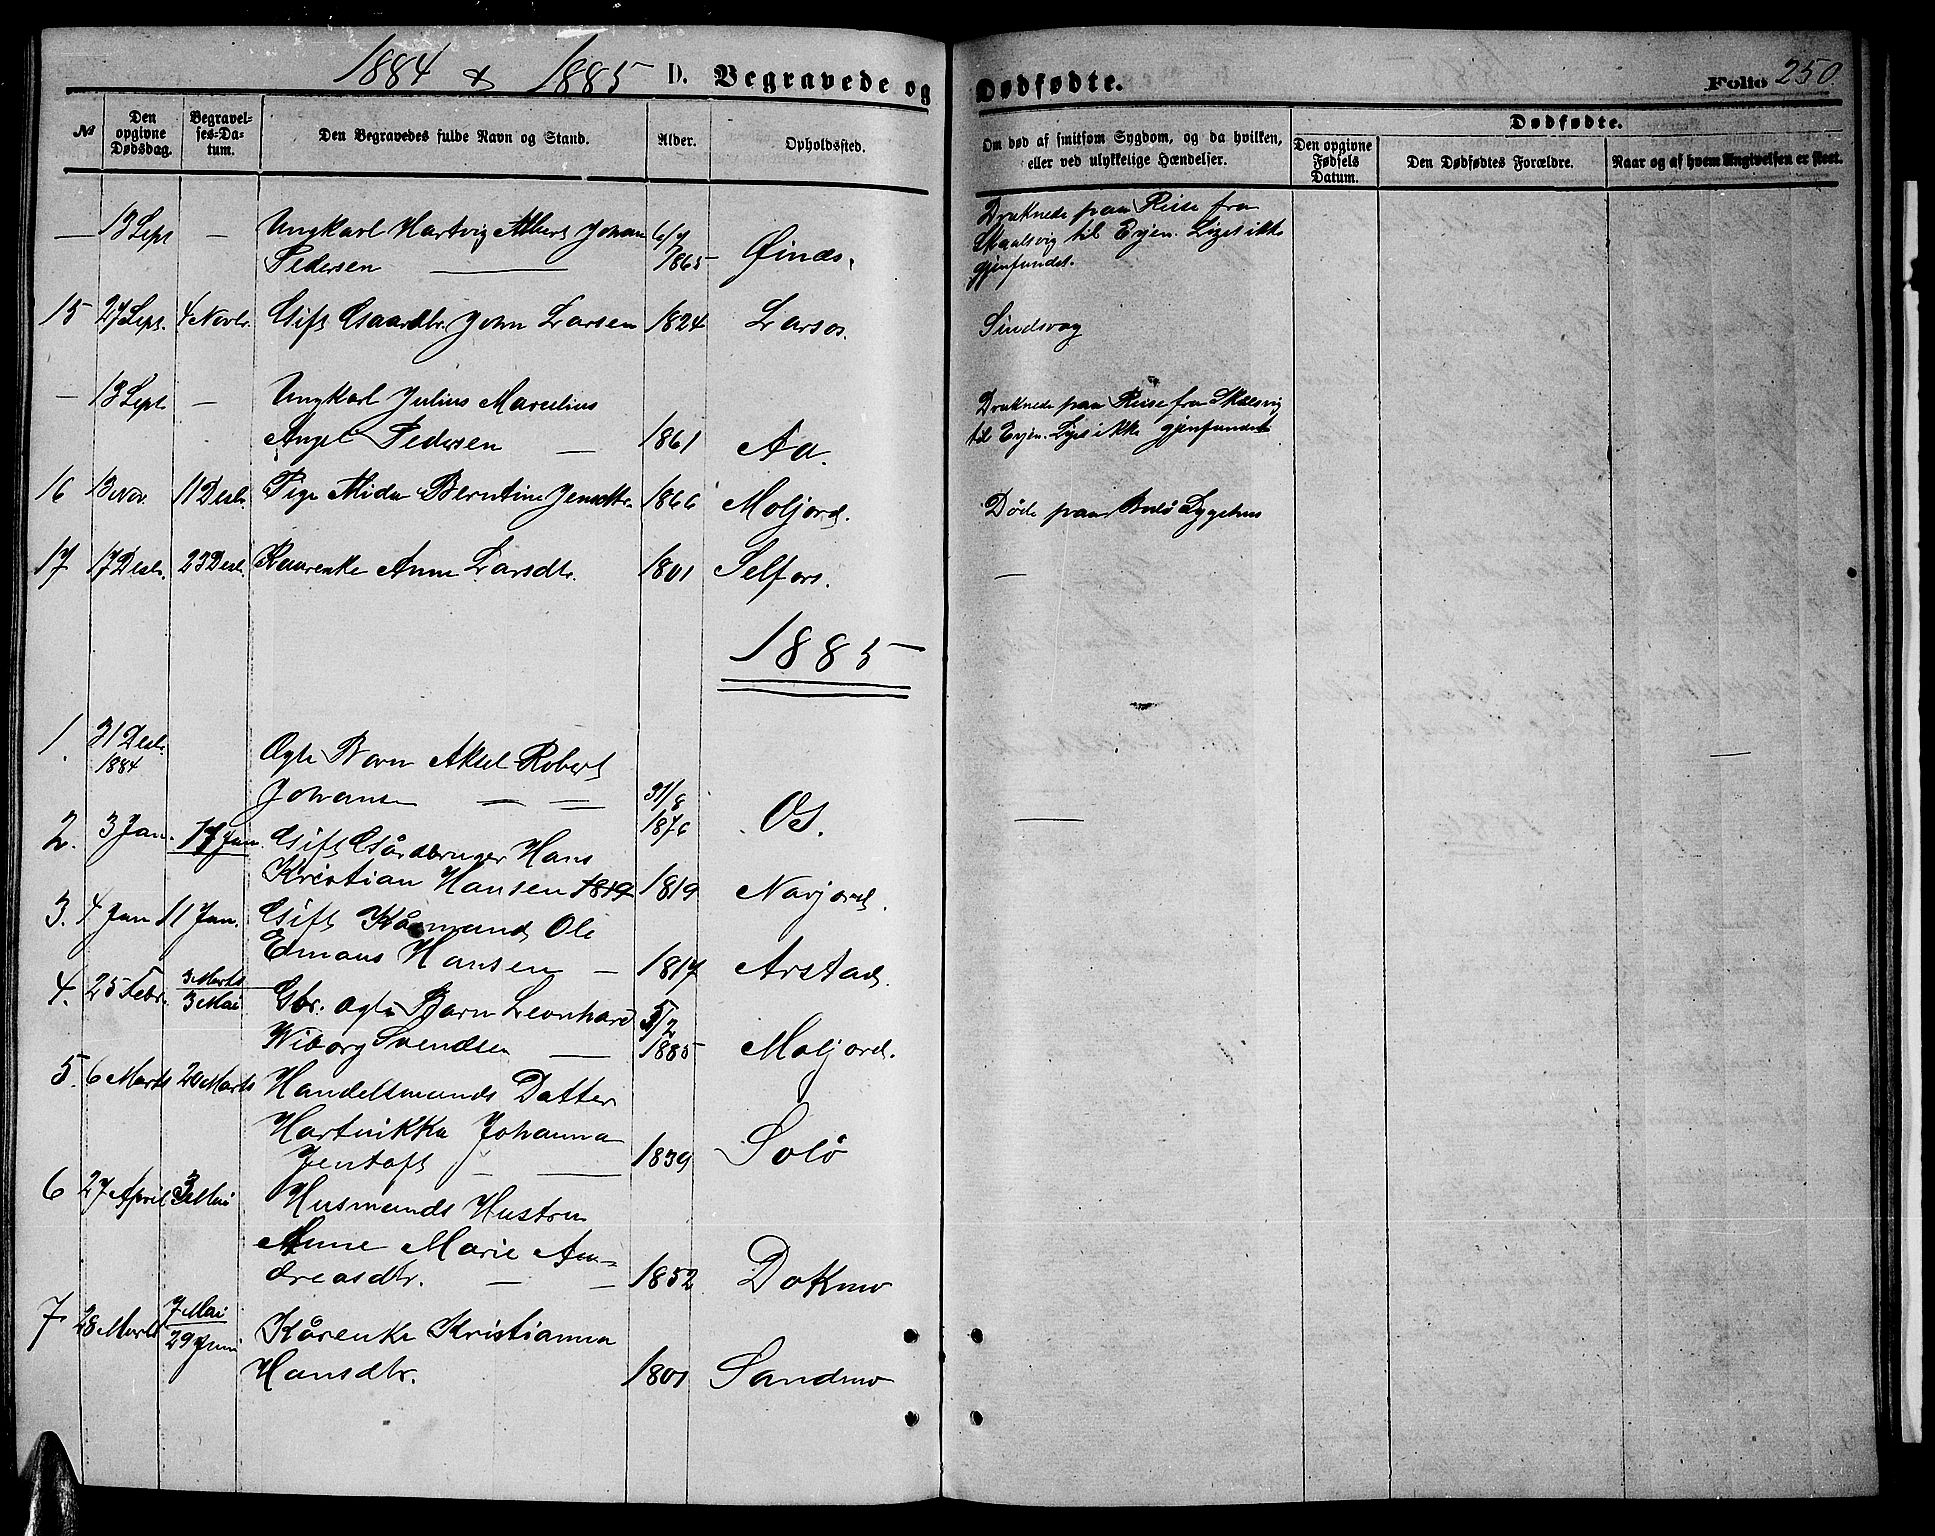 1884 & 1885 D. Begravede og Dødfødte. Folio 250
№ Den opgivne Dødsdag. Begravelses-Datum. Den Begravedes fulde Navn og Stand. Alder. Opholdssted. Om død af smitsom Sygdom, og da hvilken, eller ved ulykkelige Hændelser. Dødfødte.
Den opgivne Fødsels Datum. Den Dødfødtes Forældre. Naar og af hvem Angivelsen er skeet.
— 13 Sept — Ungkarl Hartvig Albert Johan 6/9 Druknede paa Reise fra
Pedersen — 1865 Øinæs. Skaalsvig til Evjen. Liget ikke
gjenfundet.
15 27 Sept. 4 Novbr. Gift Gaardbr. John Larsen 1824 Larsos. Sindsvag
— 13 Sept — Ungkarl Julius Marcelius Druknede paa Reise fra Skaalsvig
Angel Pedersen — 1861 Aa. til Evjen. Liget ikke gjenfundet
16 13 Nov. 11 Decbr. Pige Mida Berntine Jensdtr. 1866 Moljord. Døde paa Bodø Sygehus
17 17 Decbr. 23 Decbr. Kaarenke Anne Larsdtr. 1801 Selfors. —
1885
1. 31 Decbr. 1884 Ægte Barn Aksel Robert
Johansen — — 31/8 1876 Os. —
2. 3 Jan. 17 Jan. Gift Gårdbruger Hans
Kristian Hansen 1819 1819 Navjord.
3. 4 Jan 11 Jan. Gift Kårmand Ole
Emaus Hansen — 1817 Arstad.
4. 25 Febr. 3 Marts 3 Mai Gbr. ægte Barn Leonhard
Wiborg Svendsen — 5/2 1885 Moljord.
5. 6 Marts 20 Marts Handelsmands Datter
Hartvikka Johanna
Jentoft — — 1839 Solø
6 27 April 3 Mai Husmands Hustru
Anne Marie An-
dreasdtr. — — 1852 Dokmo
7 28 Marts 7 Mai 29 Juni Kårenke Kristianna
Hansdtr. 1801 Sandmo